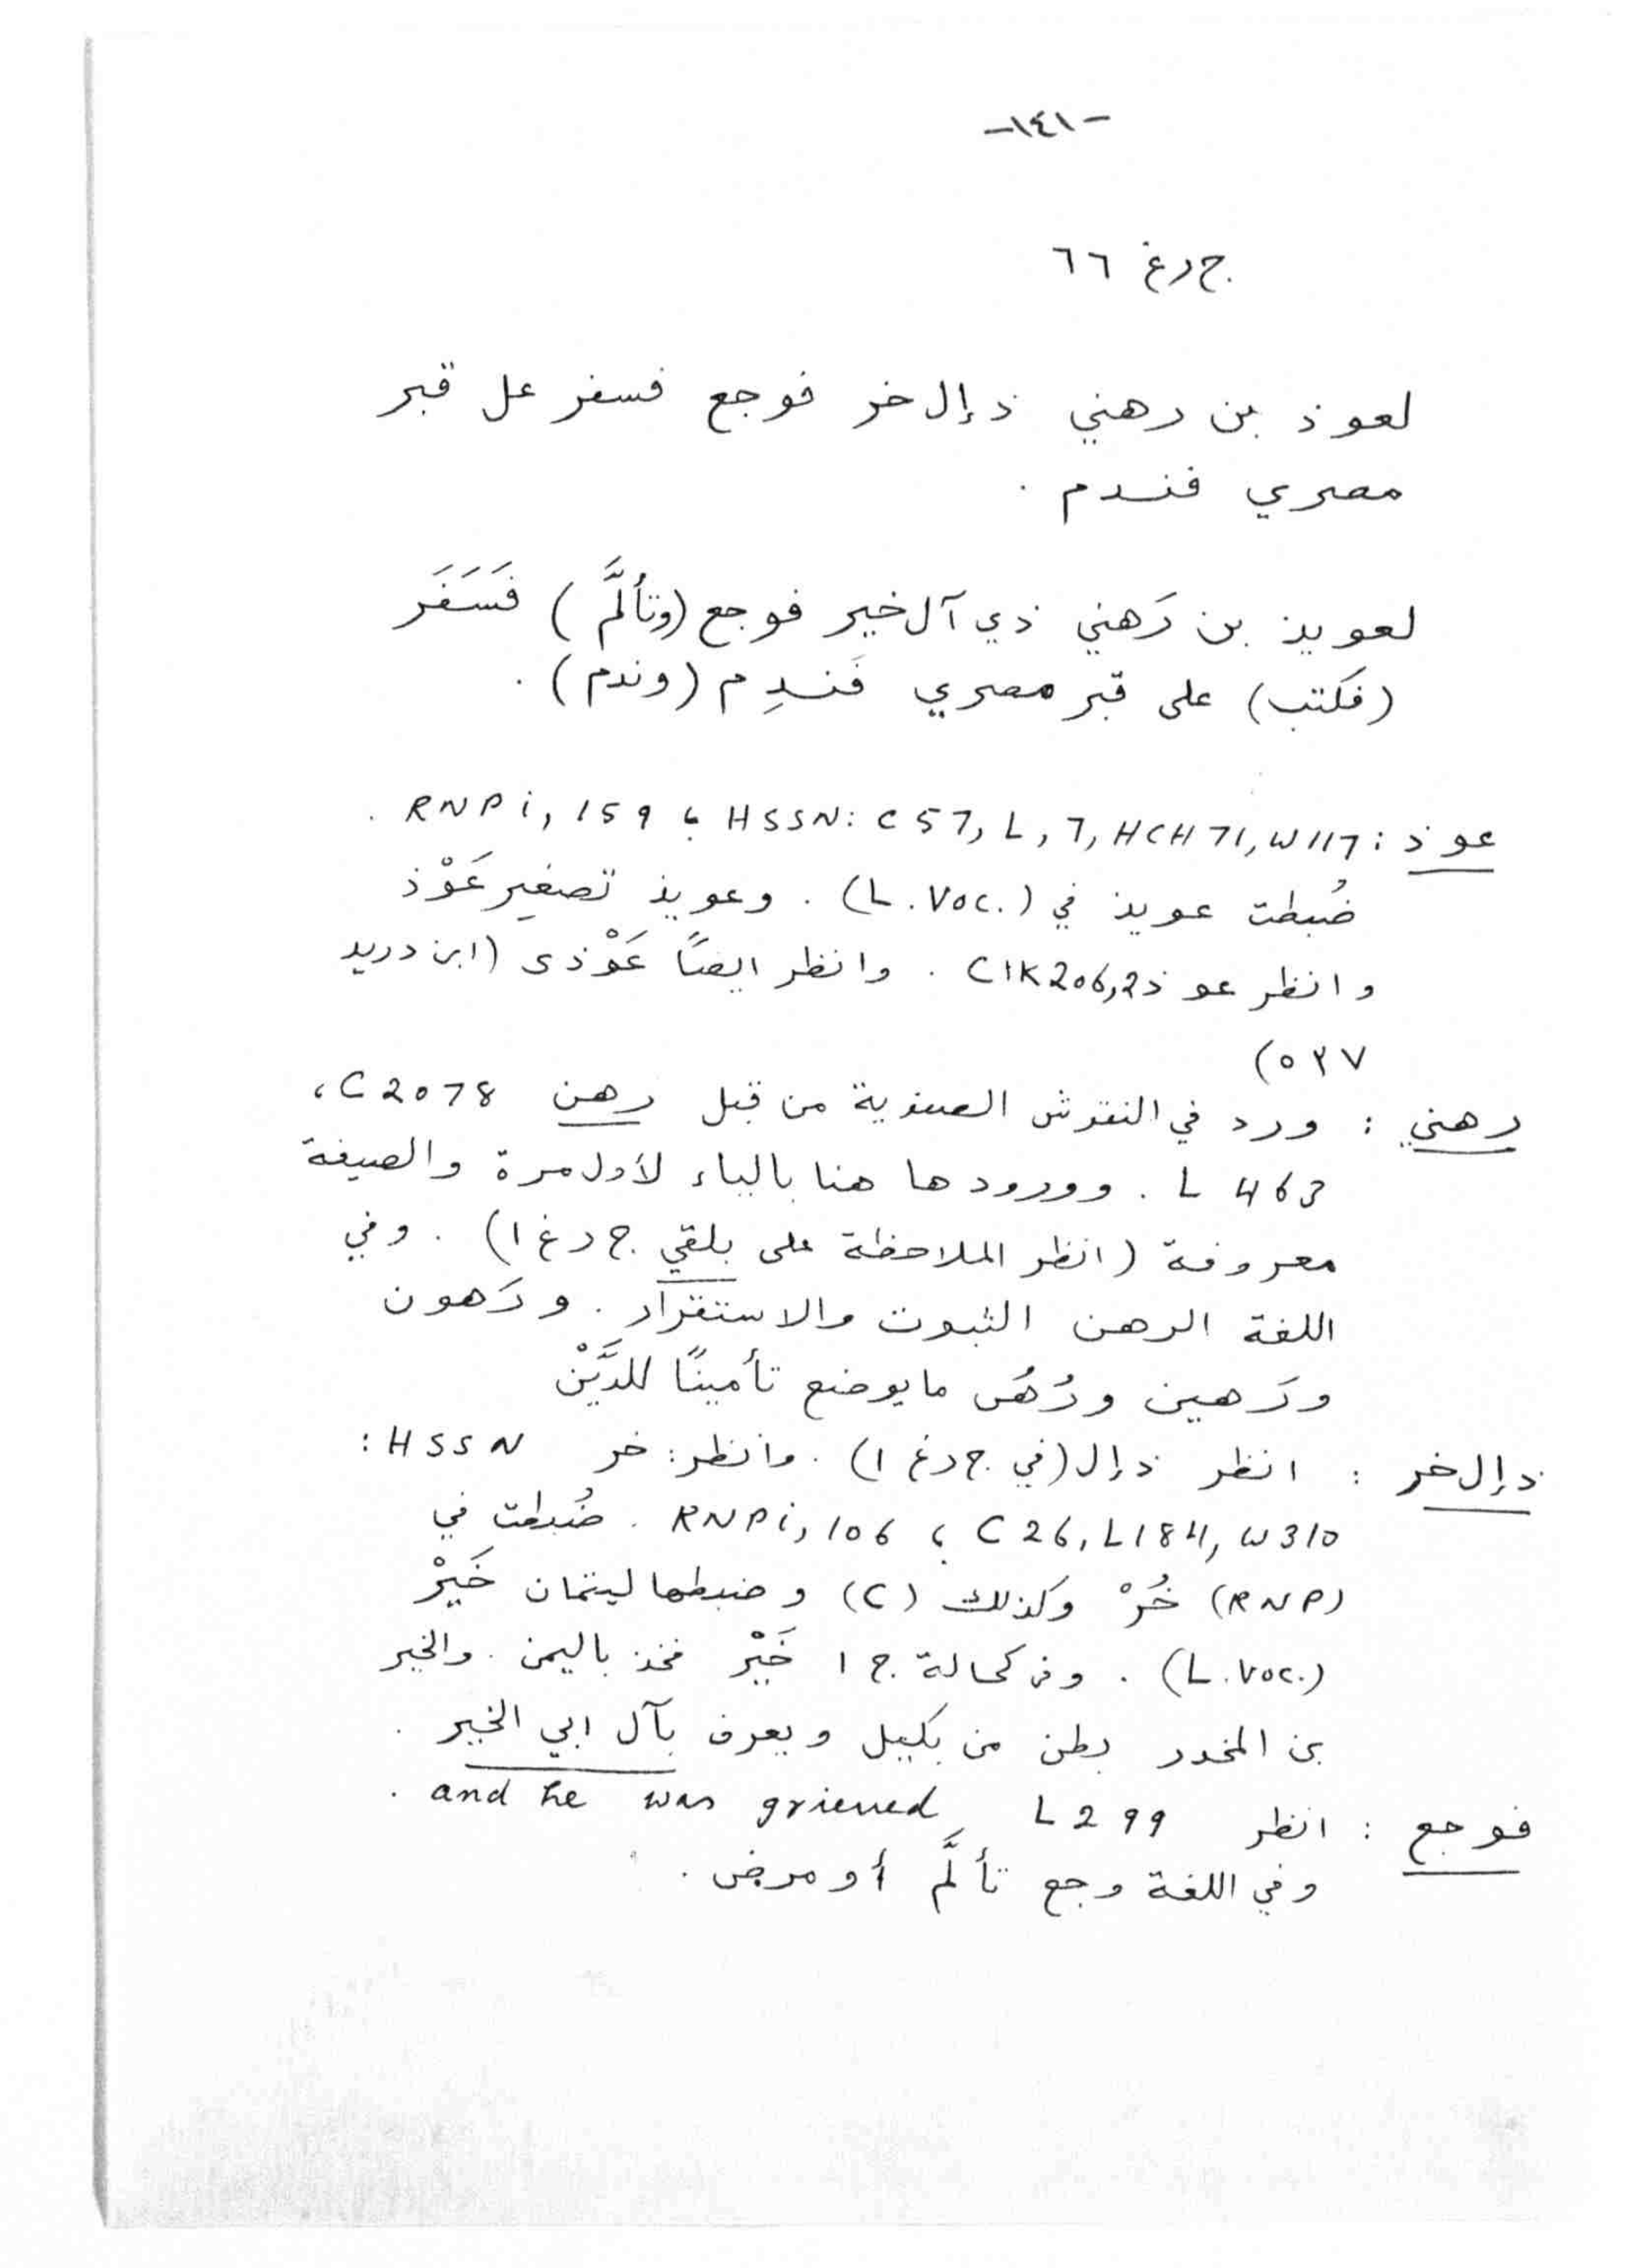 -١٤١-
ج رغ ٦٦
لعوذ بن رهني ذ إل خر فوجع فسفر عل قبر
مصري فندم .
لعويذ بن رَهني ذي آل خير فوجع (وتألَّم) فَسَفَر
(فكتب) على قبر مصري فَندِم (وندم) .
عوذ : RNP i, 159 ؛ HSSN: C 57, L, 7, HCH 71, W 117 .
ضُبطت عويذ في (L. Voc.) . وعويذ تصغير عَوْذ
وانظر عوذ CIK 206,2 . وانظر ايضًا عَوْذى (ابن دريد
٥٣٧)
رهني : ورد في النقوش الصفوية من قبل رهن C 2078 ،
L 463 . وورودها هنا بالياء لأول مرة والصيغة
معروفة (انظر الملاحظة على بلقي ج رغ ١) . وفي
اللغة الرهن الثبوت والاستقرار . ورَهون
ورَهين ورُهُن ما يوضع تأمينًا للدَّيْن
ذ إل خر : انظر ذ إل (في ج رغ ١) . وانظر : خر HSSN :
C 26, L 184, W 310 ؛ RNP i, 106 . ضُبطت في
(RNP) خُرْ وكذلك (C) وضبطها ليتمان خَيْرْ
(L. Voc.) . وفي كحالة ج ١ خَيْر فخذ باليمن . والخير
بن المخدر بطن من بكيل ويعرف بآل ابي الخير .
فوجع : انظر L 299 and he was grieved .
وفي اللغة وجع تألَّم أو مرض .